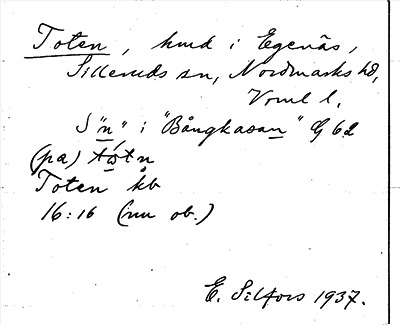 Toten, hmd i Egenäs,
Silleruds sn, Nordmarks hd,
Vrml l.
S "n" i "Bångkasan" G 62
(pa) tó̤tn
Toten kb
16:16 (nu ob.)
E. Silfors 1937.